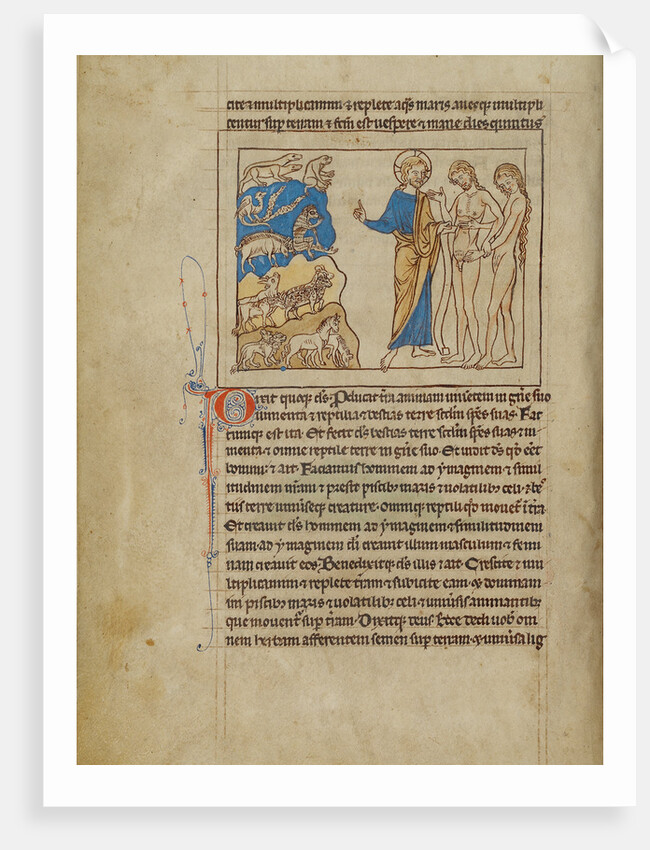 cite & multiplicamini & replete aq̄s maris auesq; multipli
centur sup̄ terram & fc̄m est uespere & mane dies quintus
Dixit quoq; ds̄. Producat tr̄a animam uiuentem in gn̄e suo
iumenta & reptilia & bestias terre scd̄m sp̄es suas. Fac
tumq; est ita. Et fecit ds̄ bestias terre scd̄m sp̄es suas & iu
menta & omne reptile terre in gn̄e suo. Et uidit ds̄ qd̄ eēt
bonum: & ait. Faciamus hominem ad ymaginem & simili
itudinem nr̄am & presit piscib; maris & uolatilib; celi & bes
tiis terre uniuseq; creature. omniq; reptili qd̄ mouet̄ i tr̄a
Et creauit ds̄ hominem ad ymaginem & similitudinem
suam. ad ymaginem di creauit illum masculum & femi
nam creauit eos. Benedixitq; ds̄ illis & ait. Crescite & mu
ltiplicamini & replete tr̄am & subicite eam. & domina
mi piscib; maris & uolatilib; celi & uniuersis animantib;
que mouent̄ sup̄ tr̄am. Dixitq; deus. Ecce dedi uob̄ om
nem herbam afferentem semen sup̄ terram. & uniuersa lig